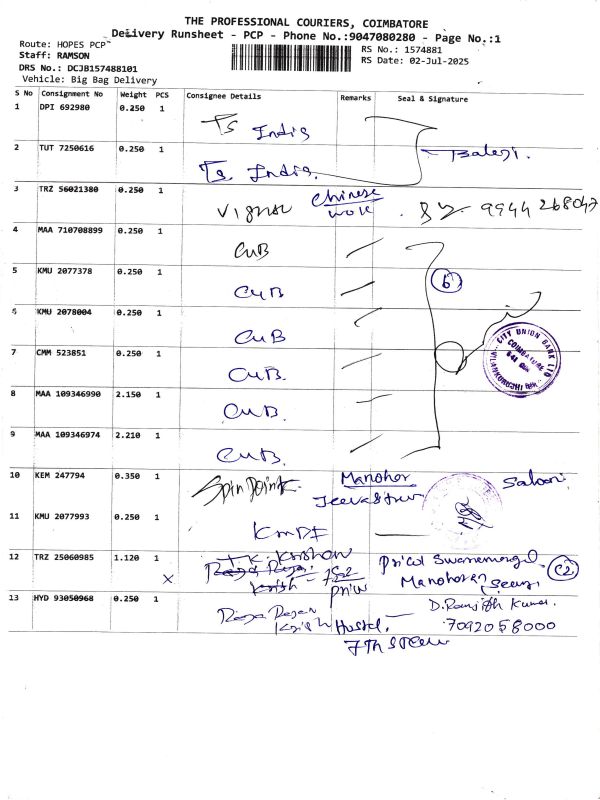 THE PROFESSIONAL COURIERS, COIMBATORE
Delivery Runsheet - PCP - Phone No.:9047080280 - Page No.:1
Route: HOPES PCP
Staff: RAMSON
DRS No.: DCJB157488101
Vehicle: Big Bag Delivery
RS No.: 1574881
RS Date: 02-Jul-2025
S No Consignment No Weight PCS Consignee Details Remarks Seal & Signature
1 DPI 692980 0.250 1 Ts India
2 TUT 7250616 0.250 1 Ts. India. Balaji.
3 TRZ 56021380 0.250 1 Chinese work 9944268047
4 MAA 710708899 0.250 1 CUB
5 KMU 2077378 0.250 1 CUB 6
6 KMU 2078004 0.250 1 CUB
7 CMM 523851 0.250 1 CUB. CITY UNION BANK LTD COIMBATORE
8 MAA 109346990 2.150 1 CUB.
9 MAA 109346974 2.210 1 CUB.
10 KEM 247794 0.350 1 Spin Point Manohor
11 KMU 2077993 0.250 1
12 TRZ 25060985 1.120 1 T.K. Krishan Pricol
X Manoharan
13 HYD 93050968 0.250 1 Raja Rajan Hostel. D. Ranjith Kumar.
7092058000
7th